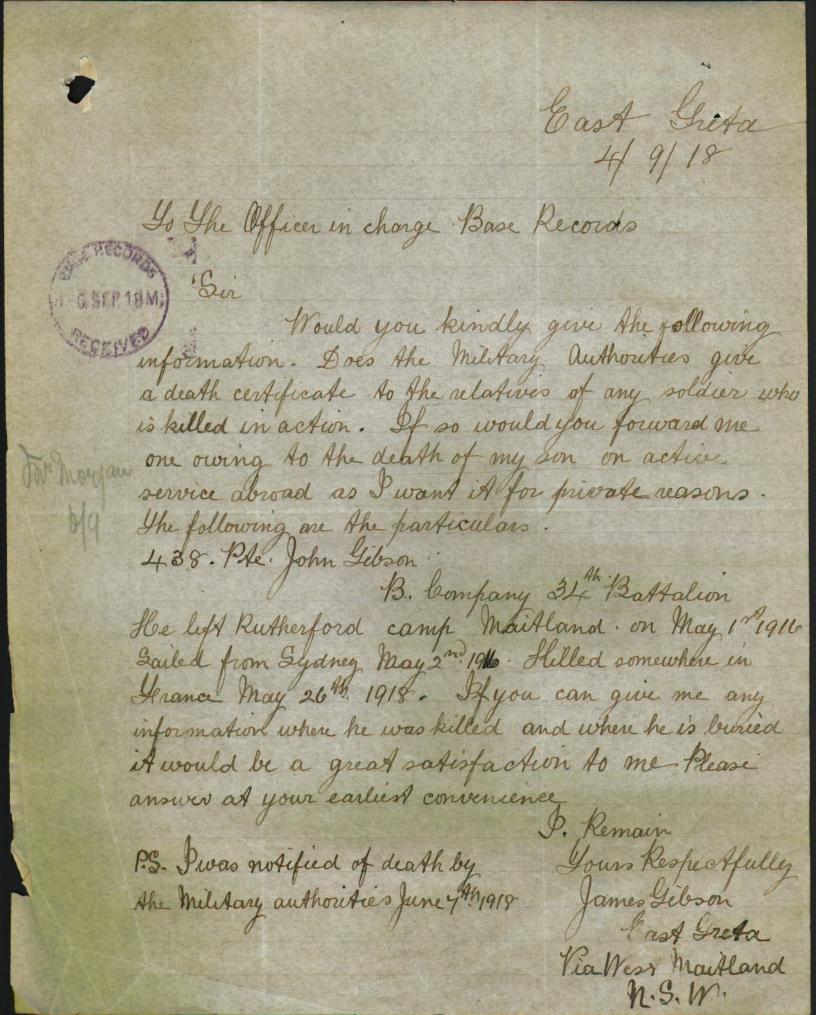 East Greta
4/9/18
To The Officer in charge Base Records
BASE RECORDS
SEP. 18
RECEIVED
Sir
Would you kindly give the following
information. Does the Military Authorities give
a death certificate to the relatives of any soldier who
is killed in action. If so would you forward me
one owing to the death of my son on active
service abroad as I want it for private reasons.
The following are the particulars.
438. Pte. John Gibson
B. Company 34th Battalion
He left Rutherford camp Maitland. on May 1st 1916
Sailed from Sydney May 2nd 1916. Killed somewhere in
France May 26th 1918. If you can give me any
information where he was killed and where he is buried
it would be a great satisfaction to me Please
answer at your earliest convenience
I. Remain
Yours Respectfully
James Gibson
East Greta
Via West Maitland
N.S.W.
P.S. I was notified of death by
the Military authorities June 7th 1918
Morgan
6/9